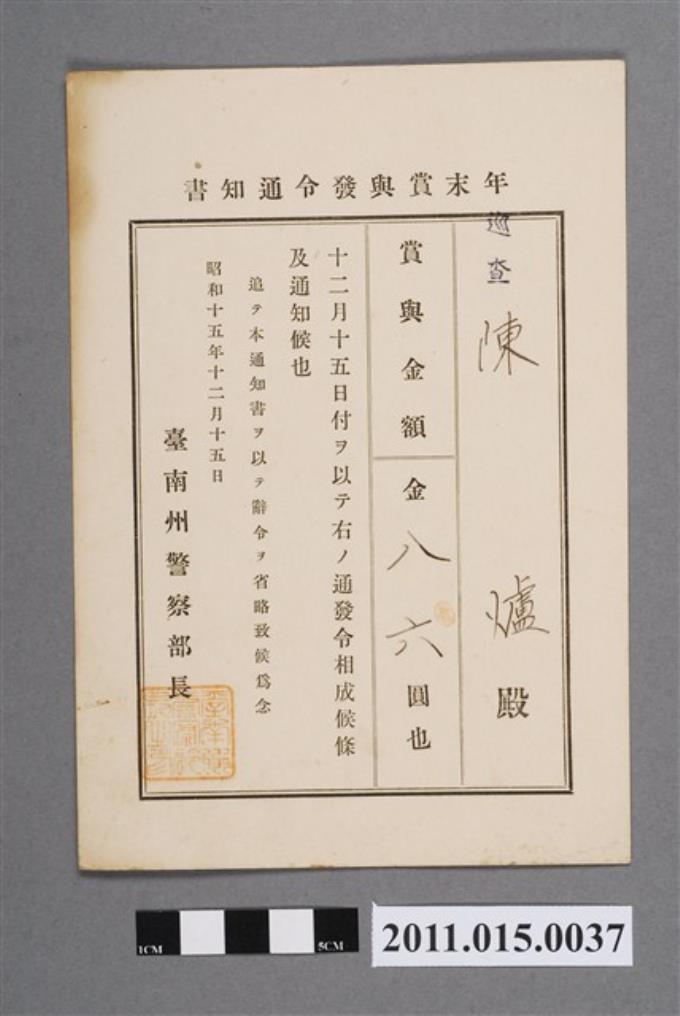 年末賞與發令通知書
巡查 陳 爐 殿
賞與金額 金八六圓也
十二月十五日付ヲ以テ右ノ通發令相成候條
及通知候也
追テ本通知書ヲ以テ辭令ヲ省略致候爲念
昭和十五年十二月十五日
臺南州警察部長
1CM 5CM
2011.015.0037